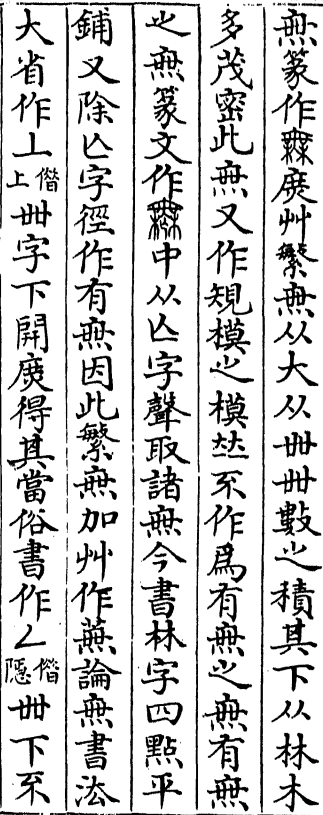 無篆作橆庻艸繁無从大从卌卌數之積其下从林木
多茂密此無又作規模之模𠀤不作爲有無之無有無
之無篆文作𣠮中从亾字聲取諸無今書林字四點平
鋪又除亾字徑作有無因此繁無加艸作蕪論無書法
大省作丄僭上卌字下開庻得其當俗書作𠃊僭隱卌下不